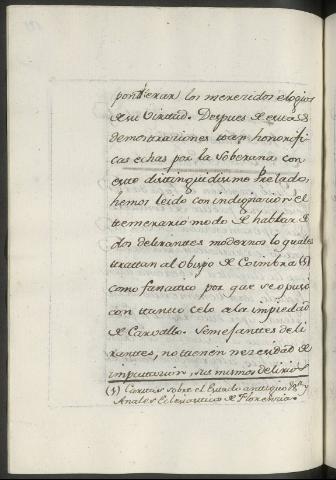 ponderar los merecidos elogios
de su virtud. Despues de estas
demostraciones tan honorifi
cas echas por la Soberana con
este distinguidisimo Prelado,
hemos leido con indignacion el
temerario modo de hablar de
dos delirantes modernos lo quales
trattan al Obispo de Coimbra (§)
como fanatico por que se opuso
con tanto celo a la impiedad
de Carvallo. Semejantes deli
rantes, no tienen necesidad de
imputacion, sus mismos delirios
(§) Cartas sobre el Estado antiguo &ª y
Anales Eclesiasticos de Florencia.